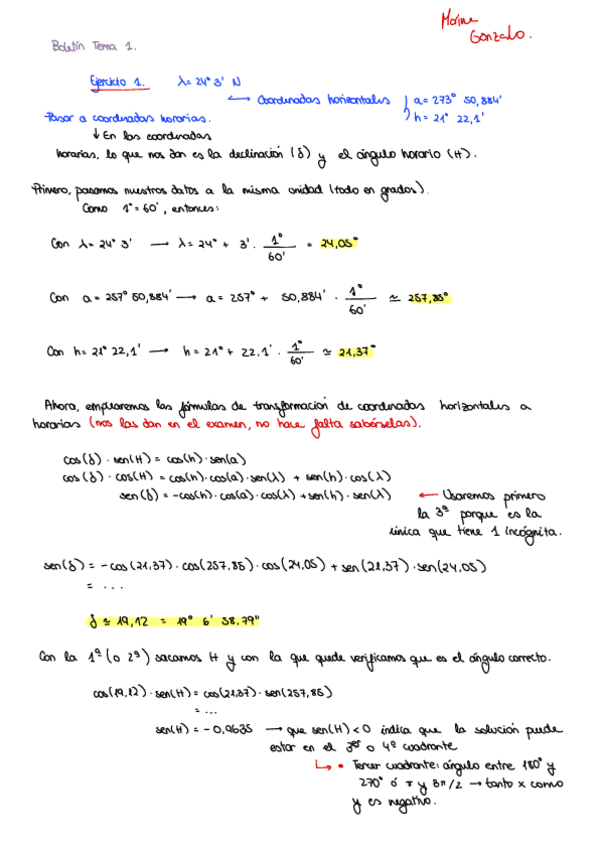 Marina
Gonzalo.
Boletín Tema 1.
Ejercicio 1. λ= 24° 3' N
⟵ Coordenadas horizontales a = 273° 50,884'
h = 21° 22,1'
Pasar a coordenadas horarias.
↓ En las coordenadas
horarias, lo que nos dan es la declinación (δ) y el ángulo horario (H).
Primero, pasamos nuestros datos a la misma unidad (todo en grados).
Como 1° = 60', entonces:
Con λ= 24° 3' ⟶ λ = 24° + 3' · 1°/60' = 24,05°
Con a = 257° 50,884' ⟶ a = 257° + 50,884' · 1°/60' ≃ 257,85°
Con h = 21° 22,1' ⟶ h = 21° + 22.1' · 1°/60' ≃ 21,37°
Ahora, emplearemos las fórmulas de transformación de coordenadas horizontales a
horarias (nos las dan en el examen, no hace falta sabérselas).
cos(δ) · sen(H) = cos(h) · sen(a)
cos(δ) · cos(H) = cos(h) · cos(a) · sen(λ) + sen(h) · cos(λ)
sen(δ) = -cos(h) · cos(a) · cos(λ) + sen(h) · sen(λ) ⟵ Usaremos primero
la 3ª porque es la
única que tiene 1 incógnita.
sen(δ) = -cos(21,37) · cos(257.85) · cos(24,05) + sen(21,37) · sen(24,05)
= ...
δ ≃ 19,12 = 19° 6' 58,79"
Con la 1ª (o 2ª) sacamos H y con la que quede verificamos que es el ángulo correcto.
cos(19,12) · sen(H) = cos(21,37) · sen(257,85)
= ...
sen(H) = -0,9635 ⟶ que sen(H) < 0 indica que la solución puede
estar en el 3er o 4º cuadrante
↳ • Tercer cuadrante: ángulo entre 180° y
270° ó π y 3π/2 → tanto x como
y es negativo.